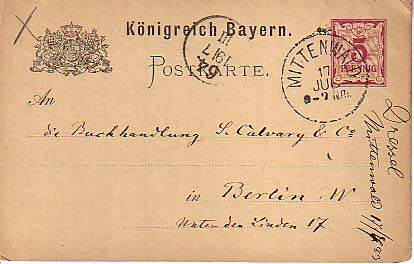 Königreich Bayern.
POSTKARTE.
MITTENWALD
17
JUL
5
PFENNIG
An
die Buchhandlung S. Calvary & Co
in Berlin. W
Unter den Linden 17
Dressel
Mittenwald 17/7